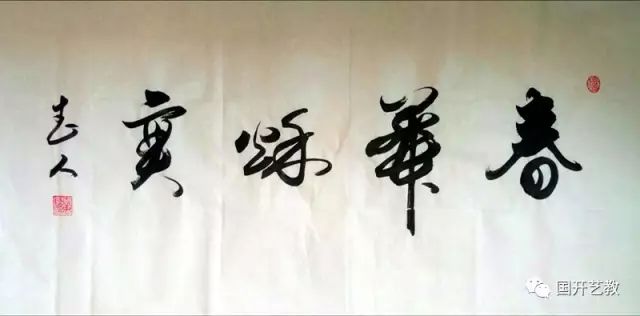 春華秌實
人
国开艺教